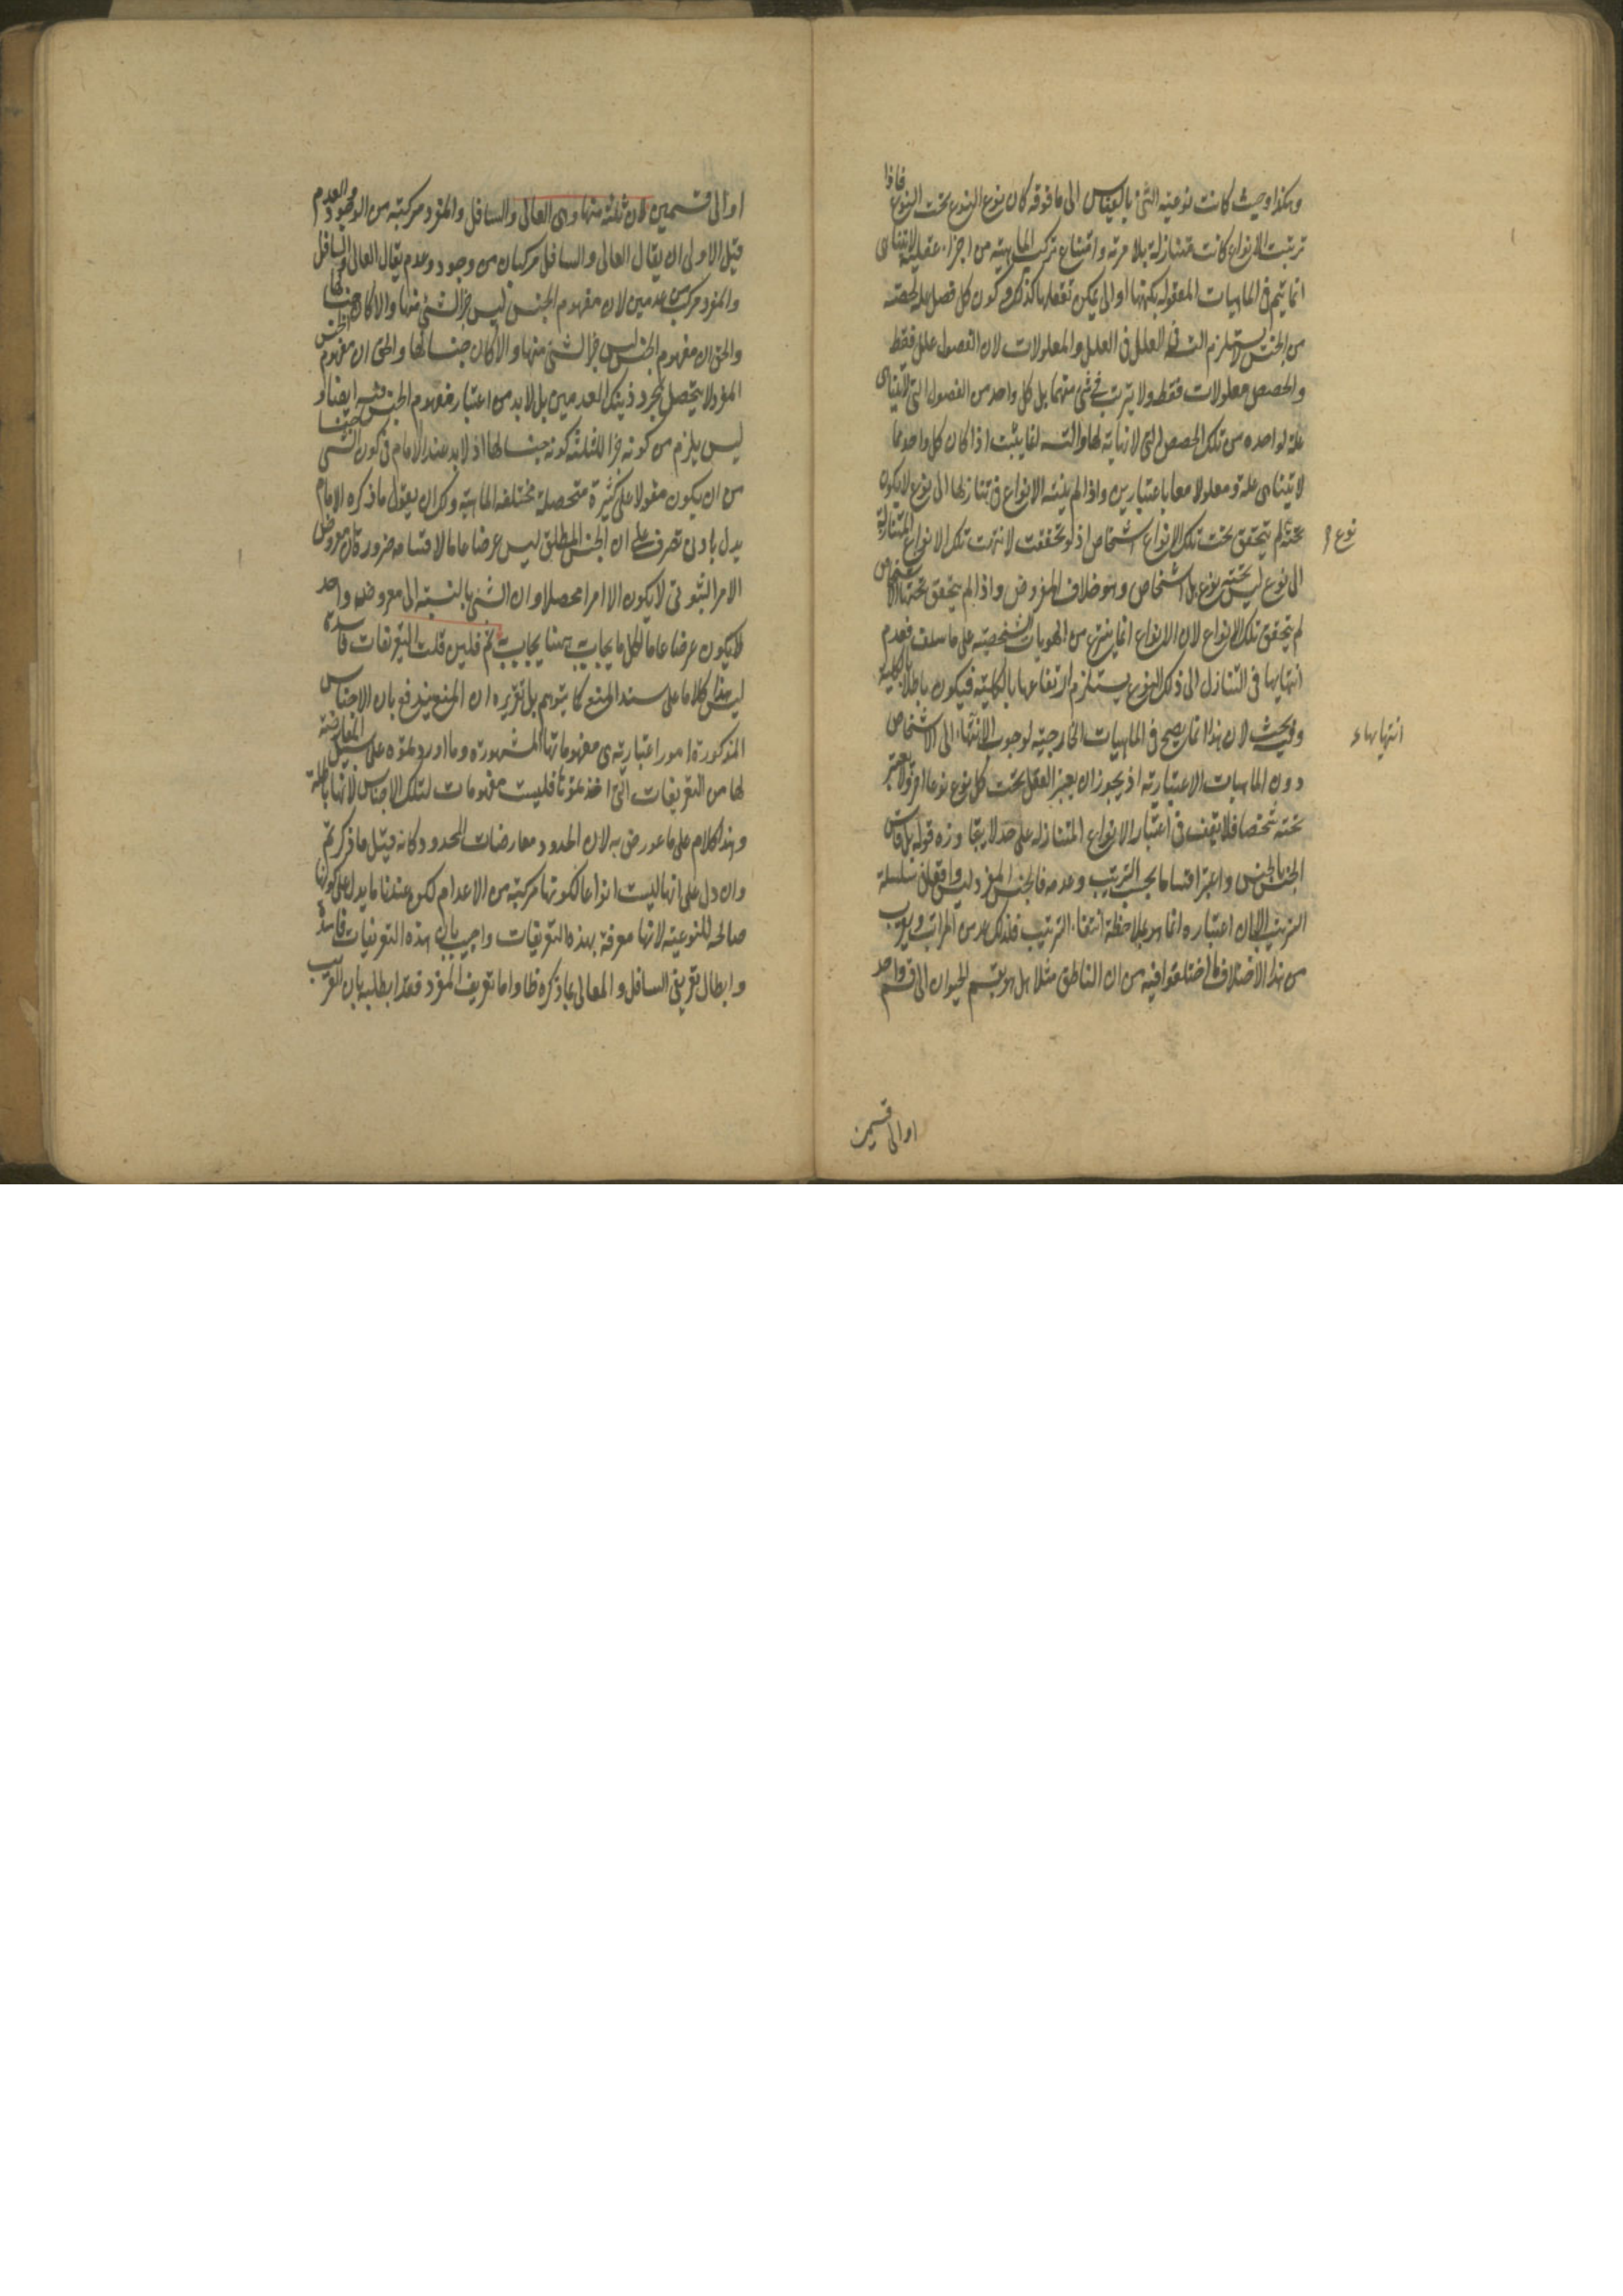 وهكذا وحيث كانت نوعية الشئ بالقياس الى ما فوقه كان نوع النوع تحت النوع فاذا
ترتبت الانواع كانت متنازلة بلا مرية وامتناع تركب الماهية من اجزاء عقلية لا تتناهى
انما يتم فى الماهيات المعقولة بكنهها او التى يمكن تعقلها كذلك وكون كل فصل علة لحصته
من الجنس لا يستلزم التسـ فى العلل والمعلولات لان الفصول علل فقط
والحصص معلولات فقط ولا يترتب فى شئ منهما بل كل واحد من الفصول التى لا تتناهى
علة لواحدة من تلك الحصص التى لا نهاية لها والتسـ انما يثبت اذا كان كل واحد مما
لا يتناهى علة ومعلولا معا باعتبارين واذا لم ينته الانواع فى تنازلها الى نوع لا يكون
تحته لم يتحقق تحت تلك الانواع اشخاص اذ لو تحققت لانتهت تلك الانواع المتنازلة
نوع
الى نوع ليس تحته نوع بل اشخاص وهو خلاف المفروض واذا لم يتحقق تحتها الاشخاص
لم يتحقق تلك الانواع لان الانواع انما ينتزع من الهويات الشخصية على ما سلف فعدم
انتهايها فى التنازل الى ذلك النوع يستلزم ارتفاعها بالكلية فيكون باطلا بالكلية
وفيه بحث لان هذا انما يصح فى الماهيات الخارجية لوجوب الانتهاء الى الاشخاص
انتهايهاء
دون الماهيات الاعتبارية اذ يجوز ان يعتبر العقل تحت كل نوع نوعا اخر ولا يعتبر
تحته شخصا فلا يقف فى اعتبار الانواع المتنازلة على حد لا يتجاوزه قوله بل قاس
الجنس بالجنس واعتبر اقسامها بحسب الترتيب وعدمه فالجنس المفرد ليس واقعا فى سلسلة
الترتيب الا ان اعتباره انما هو بملاحظة انتفاء الترتيب فلذلك عد من المراتب ويقرب
من هذا الاختلاف ما اختلفوا فيه من ان الناطق مثلا هل هو يقسم الحيوان الى قسم واحد
او الى قسمين
او الى قسمين لان ثلثة منها وهى العالى والسافل والمفرد مركبة من الوجود والعدم
قيل الاولى ان يقال العالى والسافل مركبان من وجود وعدم يقال العالى والسافل
والمفرد مركب من عدمين لان مفهوم الجنس ليس جزا لشئ منها والا لكان جنسا لها
والحق ان مفهوم الجنس ليس جزا لشئ منها والا لكان جنسا لها والحق ان مفهوم الجنس
المفرد لا يتحصل بمجرد ذينك العدمين بل لا بد من اعتبار مفهوم الجنس فيه ايضا و
ليس يلزم من كونه جزا للثلثة كونه جنسا لها اذ لا بد عند الامام فى كون الشئ جنسا
من ان يكون مقولا على كثيرة متحصلة مختلفة الماهية ولك ان يقول ما ذكره الامام
يدل بادنى تصرف على ان الجنس المطلق ليس عرضا عاما لاقسامه ضرورة ان معروض
الامر الثبوتى لا يكون الا امرا محصلا وان الشئ بالنسبة الى معروضه واحد
لا يكون عرضا عاما لكل ما يجاب هنا يجاب ثم فلين قلت التعريفات فاسدة
ليس هذا كلاما على سند المنع كما يتوهم بل تقريره ان المنع يندفع بان الاجناس
المذكورة امور اعتبارية هى مفهوماتها المشهورة وما اوردتموه على سبيل المعارضة
لها من التعريفات التى اخذتموها فليست مفهومات لتلك الاجناس لانها باطلة
وهذا كلام على ما عورض به لان الحدود معارضات للحدود كانه قيل ما ذكرتم
وان دل على انها ليست انواعا لكونها مركبة من الاعدام لكن عندنا ما يدل على كونها
صالحة للنوعية لانها معرفة بهذه التعريفات واجيب بان هذه التعريفات فاسدة
وابطال تعريفى السافل والعالى بما ذكره ظ واما تعريف المفرد فقد ابطله بان القريب